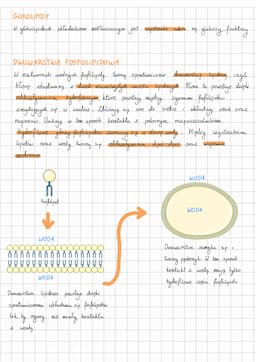 GLIKOLIPIDY
W glikolipidach składnikiem występującym jest cząsteczka cukru np. glukozy, fruktozy
DWUWARSTWA FOSFOLIPIDOWA
W roztworach wodnych fosfolipidy tworzą spontanicznie dwuwarstwę lipidową, czyli
błonę zbudowaną z dwóch warstw Błona ta powstaje dzięki
oddziaływaniom hydrofobowym które powstają między ogonami fosfolipidów
znajdujących się w wodzie. Zbliżają się one do siebie i układają obok siebie
ogonami. Unikają w ten sposób kontaktu z polarnym rozpuszczalnikiem.
Hydrofilowe głowy fosfolipidów zwracają się w stronę wody. Między cząsteczkami
lipidów oraz wody tworzą się oddziaływania oraz wiązania
wodorowe.
fosfolipid
WODA
WODA
WODA
WODA
Dwuwarstwa lipidowa powstaje dzięki
spontanicznemu układaniu się fosfolipidów
tak by ogony nie miały kontaktu
z wodą
Dwuwarstwa zamyka się i
tworzy pęcherzyk. W ten sposób
kontakt z wodą mają tylko
hydrofilowe części fosfolipidu